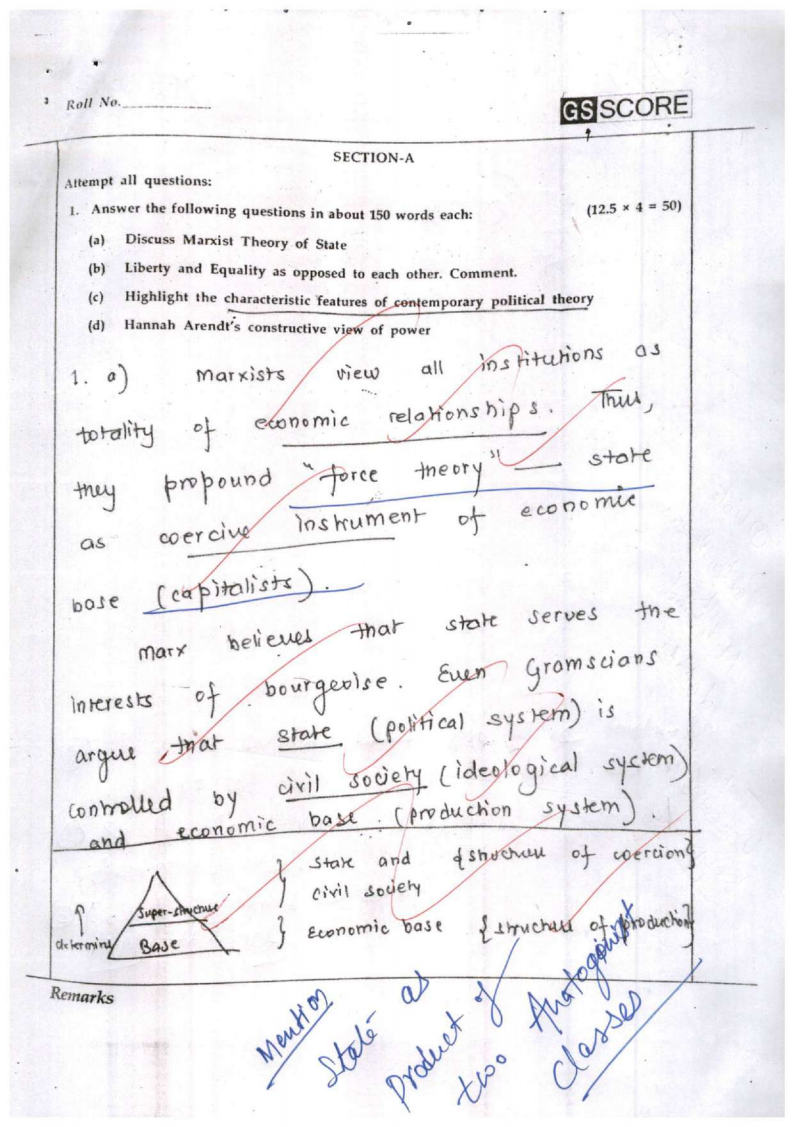 Roll No.
GS SCORE
SECTION-A
Attempt all questions:
1. Answer the following questions in about 150 words each: (12.5 × 4 = 50)
(a) Discuss Marxist Theory of State
(b) Liberty and Equality as opposed to each other. Comment.
(c) Highlight the characteristic features of contemporary political theory
(d) Hannah Arendt's constructive view of power
1. a) Marxists view all institutions as
totality of economic relationships. Thus,
they propound "force theory" — state
as coercive instrument of economic
base (capitalists).
Marx believes that state serves the
interests of bourgeoise. Even Gramscians
argue that state (political system) is
controlled by civil society (ideological system)
and economic base. (production system).
Super-structure } State and civil society {structure of coercion}
↑ determines Base } Economic base {structure of production}
Remarks
Mention
State as
Product of
two Anatogonist
Classes